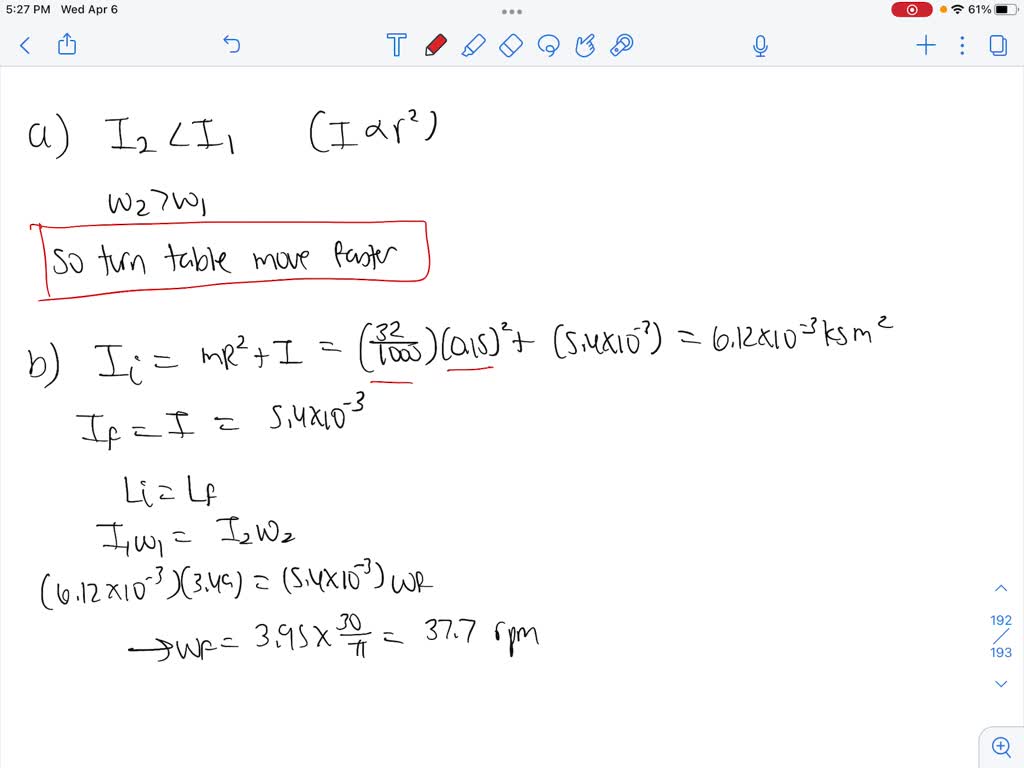 5:27 PM Wed Apr 6
61%
a) I₂ < I₁ (I ∝ r²)
w₂ > w₁
So turn table move faster
b) Iᵢ = mR² + I = (32/1000)(0.15)² + (5.4×10⁻³) = 6.12×10⁻³ kg m²
I_f = I = 5.4×10⁻³
Lᵢ = L_f
I₁w₁ = I₂w₂
(6.12×10⁻³)(3.49) = (5.4×10⁻³) w_f
→ w_f = 3.95 × 30/π = 37.7 rpm
192
193